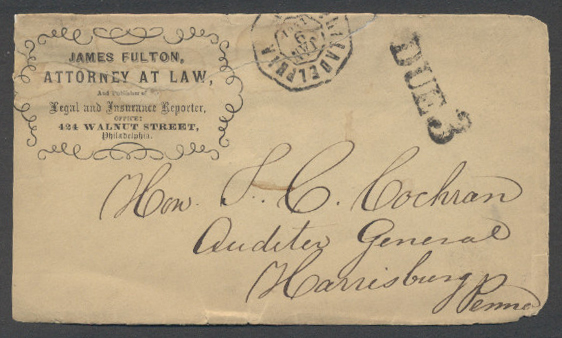 JAMES FULTON,
ATTORNEY AT LAW,
And Publisher of
Legal and Insurance Reporter,
OFFICE:
424 WALNUT STREET,
Philadelphia.
PHILADELPHIA
JAN
9
DUE 3
Hon. T. C. Cochran
Auditor General
Harrisburg
Penna